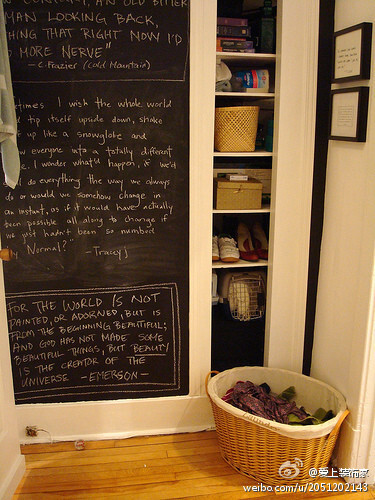 AN OLD BITTER
MAN LOOKING BACK,
THING THAT RIGHT NOW I'D
MORE NERVE"
-C. Frazier (Cold Mountain)
times I wish the whole world
tip itself upside down, shake
up like a snowglobe and
everyone into a totally different
I wonder what'd happen, if we'd
do everything the way we always
do or would we somehow change in
an instant, as if it would have actually
been possible all along to change if
we just hadn't been so numbed
Normal?"
-Tracey J
FOR THE WORLD IS NOT
PAINTED, OR ADORNED, BUT IS
FROM THE BEGINNING BEAUTIFUL;
AND GOD HAS NOT MADE SOME
BEAUTIFUL THINGS, BUT BEAUTY
IS THE CREATOR OF THE
UNIVERSE -EMERSON-
@爱上装饰家
weibo.com/u/2051202143